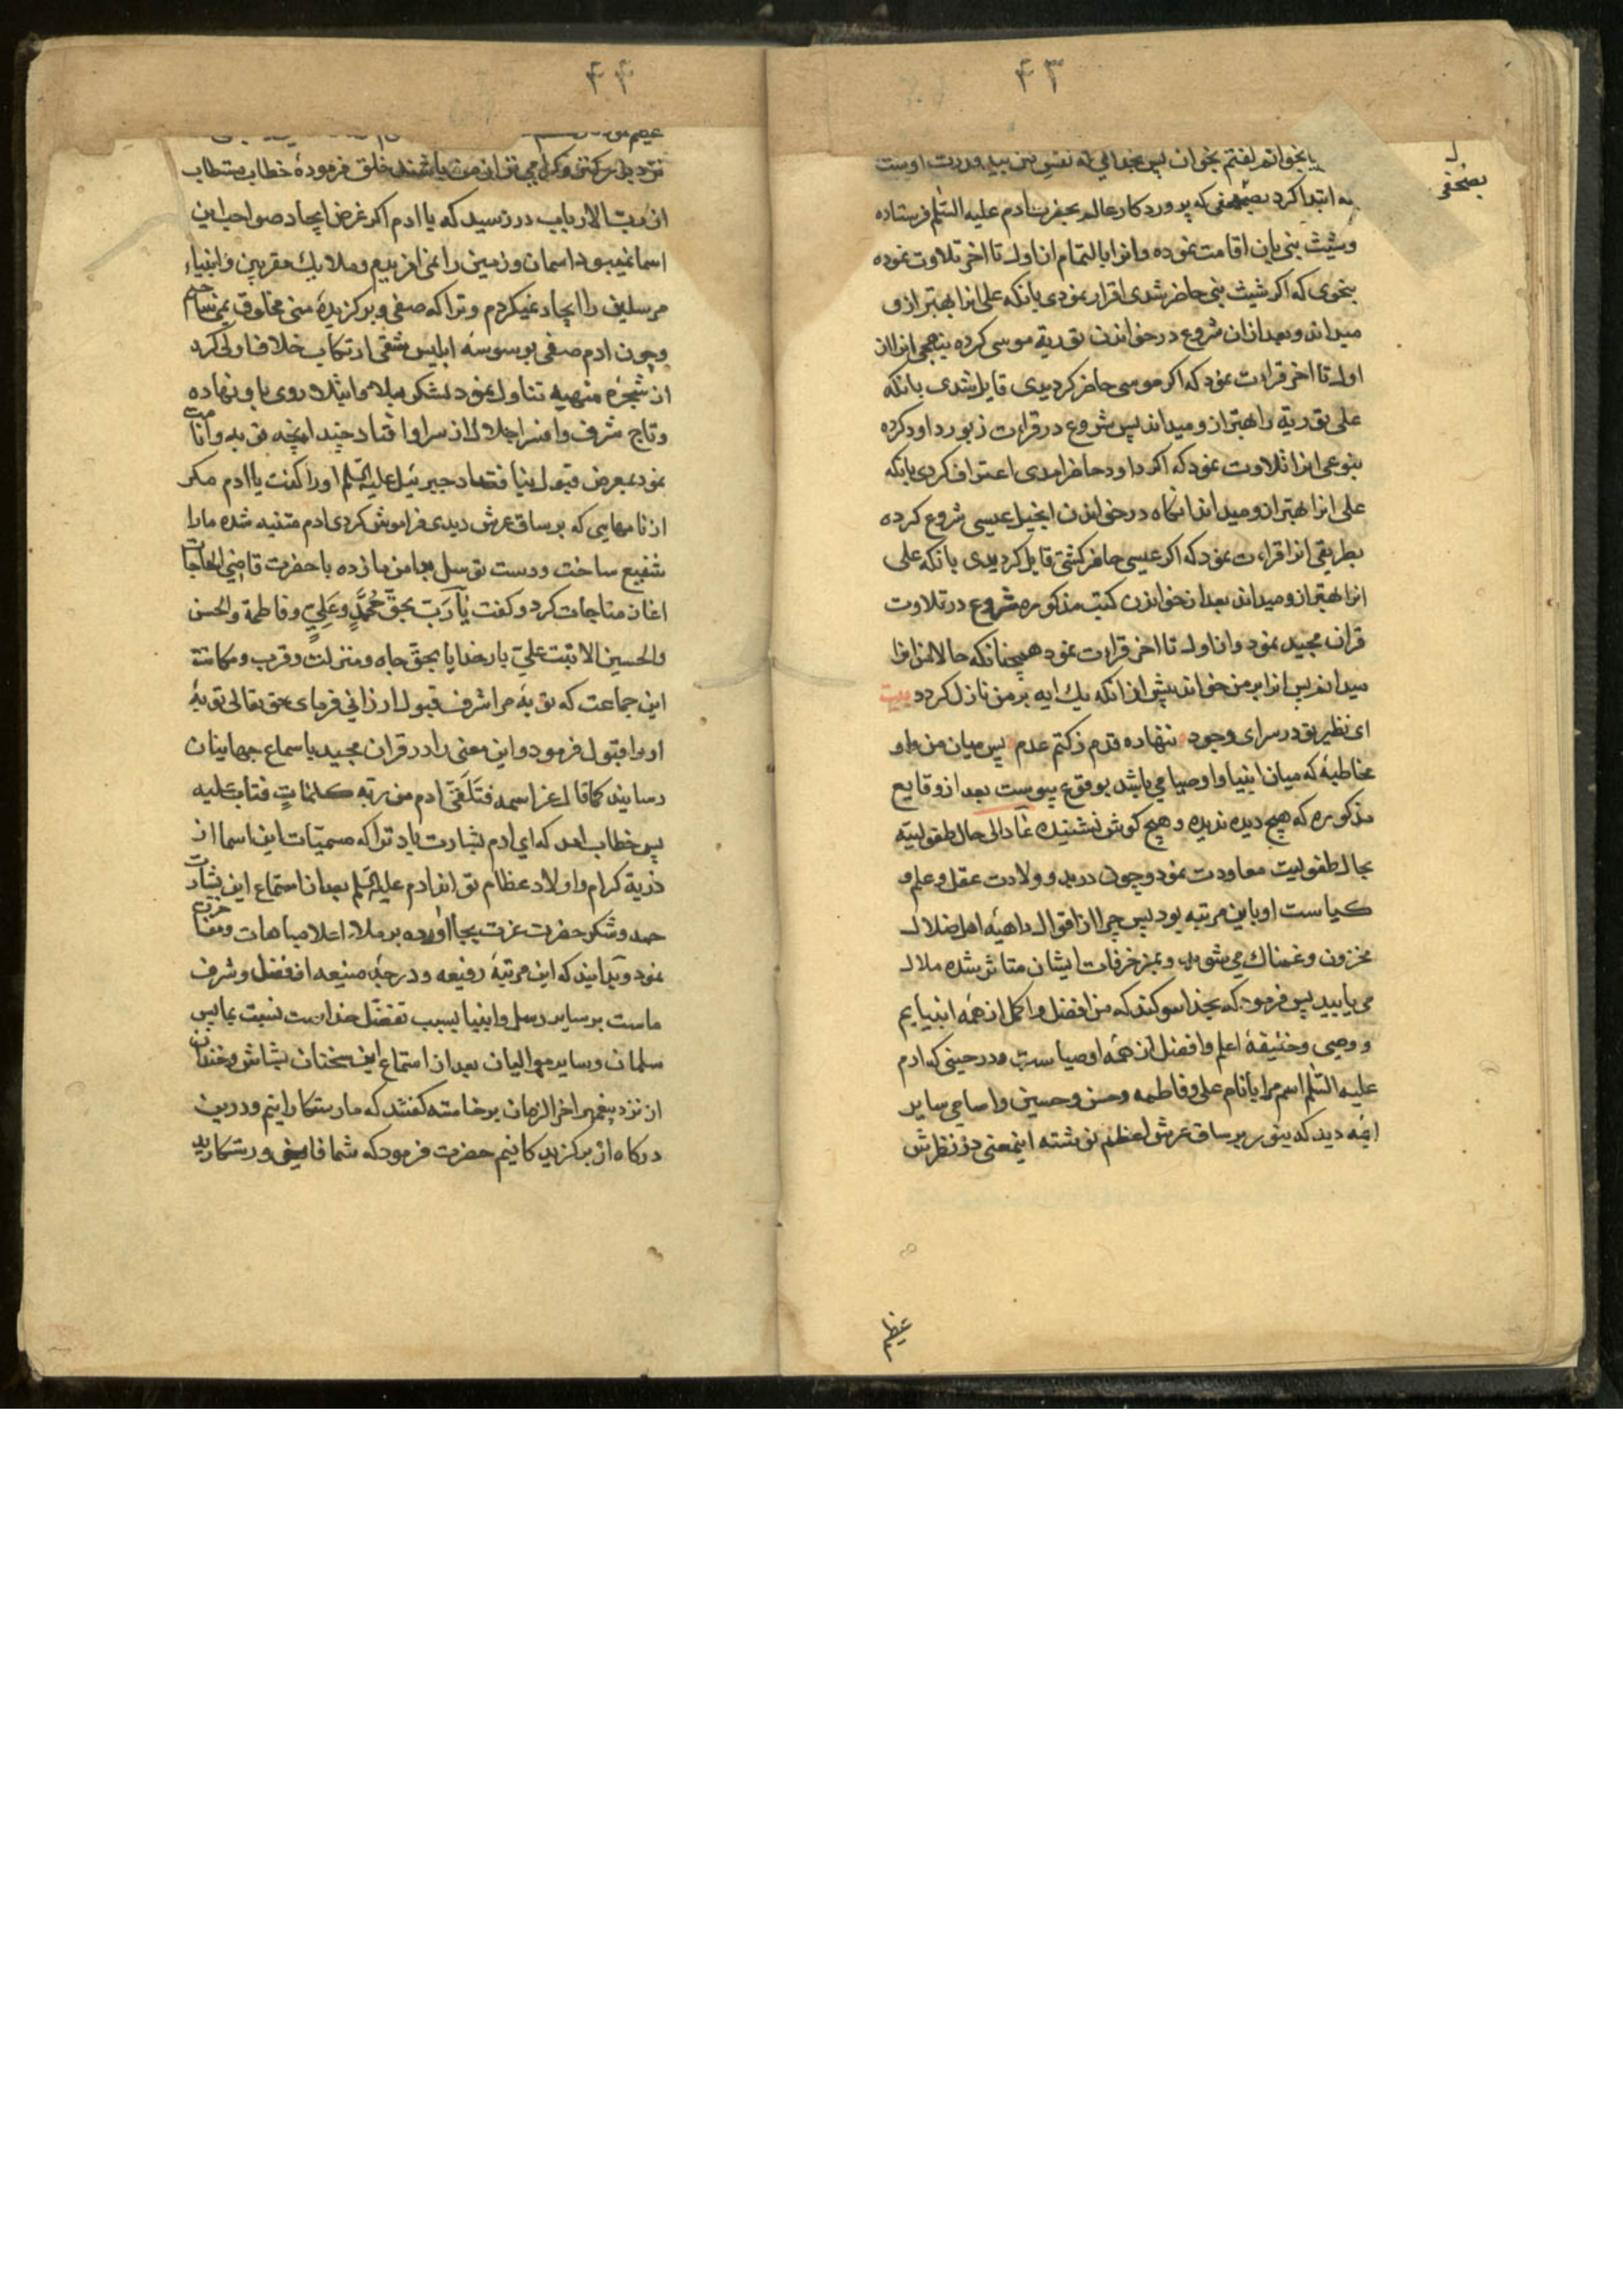 ۴۳
یا بخوانم گفتم بخوان پس بخدائی که نفس من بید قدرت اوست
که ابتدا کرد بصحفی که پروردکار عالم بحضرت ادم علیه السّلم فرستاده
بصحفی
وشیث بنی بان اقامت نموده وانرا بالتمام از اول تا اخر تلاوت نموده
بنحوی که اکر شیث بنی حاضر شدی اقرار نمودی بانکه علی انرا بهتر از و
میداند وبعد ازان شروع درخواندن توریة موسی کرده بنهجی انرا از
اول تا اخر قراءت نمود که اکر موسی حاضر کردیدی قایل شدی بانکه
علی توریة را بهتر از و میداند پس شروع در قراءت زبور داود کرده
بنوعی انرا تلاوت نمود که اکر داود حاضر امدی اعتراف کردی بانکه
علی انرا بهتر از و میداند انکاه درخواندن انجیل عیسی شروع کرده
بطریقی انرا قراءت نمود که اکر عیسی حاضر کشتی قایل کردیدی بانکه علی
انرا بهتر از و میداند بعد از خواندن کتب مذکوره شروع در تلاوت
قران مجید نمود واز اول تا اخر قراءت نمود همچنانکه حالا من انرا
میدانم پس انرا بر من خواند پیش از انکه یك ایه بر من نازل کردد بیت
ای نظیر تو در سرای وجود ننهاده قدم زکتم عدم پس میان من واو
مخاطبهٔ که میان انبیا واوصیا می باشد بوقوع پیوست بعد از وقایع
مذکوره که هیچ دیده ندیده وهیچ کوش نشنیده عاد الی حال طفولیته
بحال طفولیت معاودت نمود وچون در بدو ولادت عقل وعلم و
کیاست او باین مرتبه بود پس چرا از اقوال واهیهٔ اهل ضلال
محزون وغمناك می شوید وبمزخرفات ایشان متاثر شده ملال
می یابید پس فرمود که بخدا سوکند که من افضل واکمل از همه انبیایم
و وصی وخلیفهٔ اعلم وافضل از همه اوصیاست ودر حینی که ادم
علیه السّلم اسم مرا با نام علی وفاطمه وحسن وحسین واسامی سایر
ایمه دید که بنور بر ساق عرش اعظم نوشته اینمعنی در نظرش
عظیم
۴۴
نزد یك تر کنی وکرامی تر از من باشند خلق فرمودهٔ خطاب مستطاب
از رب الارباب در رسید که یا ادم اکر غرض ایجاد صواحب این
اسما نمیبود اسمان وزمین را نمی افریدم وملایك مقربین وانبیاء
مرسلین را ایجاد نمیکردم وترا که صفی وبرکزیدهٔ منی مخلوق نمی ساختم
وچون ادم صفی بوسوسهٔ ابلیس شقی ارتکاب خلاف اولی کرد
از شجرهٔ منهیه تناول نمود لشکر بلا وابتلا روی باو نهاده
وتاج شرف وافسر اجلال از سر او افتاد چند انچه توبه وانابت
نمود بمعرض قبول نیافتاد جبرئیل علیه السّلم او را کفت یا ادم مکر
از نامهایی که بر ساق عرش دیدی فراموش کردی ادم متنبه شده مارا
شفیع ساخت ودست توسل بدامن ما زده با حضرت قاضی الحاجات
اغاز مناجات کرد وکفت یَا رَبّ بحقّ مُحمَّدٍ وعَلِیٍ وفاطمة والحسن
والحسین الا تبت علیّ بار خدایا بحق جاه ومنزلت وقرب ومکانت
این جماعت که توبهٔ مرا شرف قبول ارزانی فرمای حق تعالی توبهٔ
او را قبول فرمود واین معنی را در قران مجید باسماع جهانیان
رسانید کما قال عز اسمه فتَلَقّیَ ادم من ربّه کلماتٍ فتاب علیه
پس خطاب امد که ای ادم بشارت باد ترا که مسمیّات این اسما از
ذریة کرام واولاد عظام تو اند ادم علیه السّلم بعد از استماع این بشارت
حمد وشکر حضرت عزت بجا اورده بر ملاء اعلا مباهات ومفاخرت
نمود وبدانید که این مرتبهٔ رفیعه ودرجهٔ منیعه از فضل وشرف
ماست بر سایر رسل وانبیا بسبب تفضّل خداست نسبت بما پس
سلمان وسایر موالیان بعد از استماع این سخنان بشاش وخندان
از نزد پیغمبر اخر الزمان برخاسته کفتند که ما رستکارانیم ودرین
درکاه از برکزید کانیم حضرت فرمود که شما فایض ورستکارید